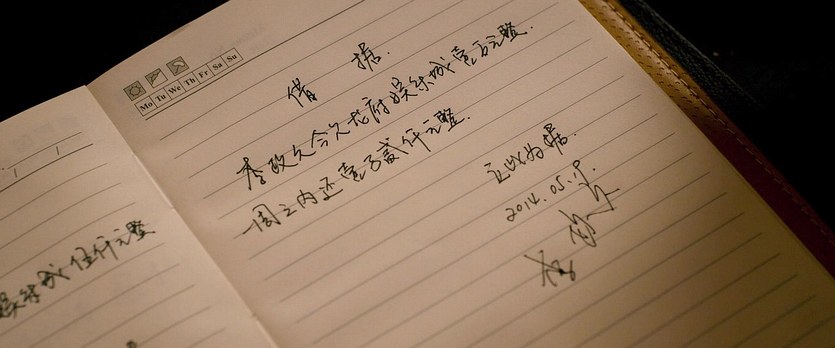 娱乐城伍仟元整
Mo Tu We Th Fr Sa Su
借 据.
李政久今欠龙府娱乐城壹万元整.
一周之内还壹万贰仟元整.
立此为据.
2014.05.